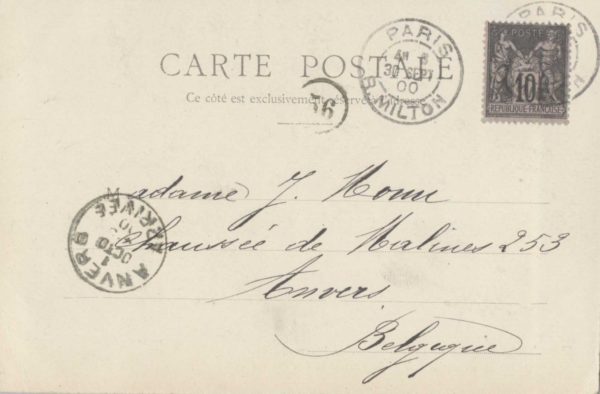 CARTE POSTALE
Ce côté est exclusivement réservé à l'adresse
PARIS
30 SEPT
00
R. MILTON
PARIS
ON
POSTE
10
REPUBLIQUE FRANÇAISE
Madame J.
Chaussée de Malines 253
Anvers
Belgique
ANVERS
1
OCTO
ARRIVÉE